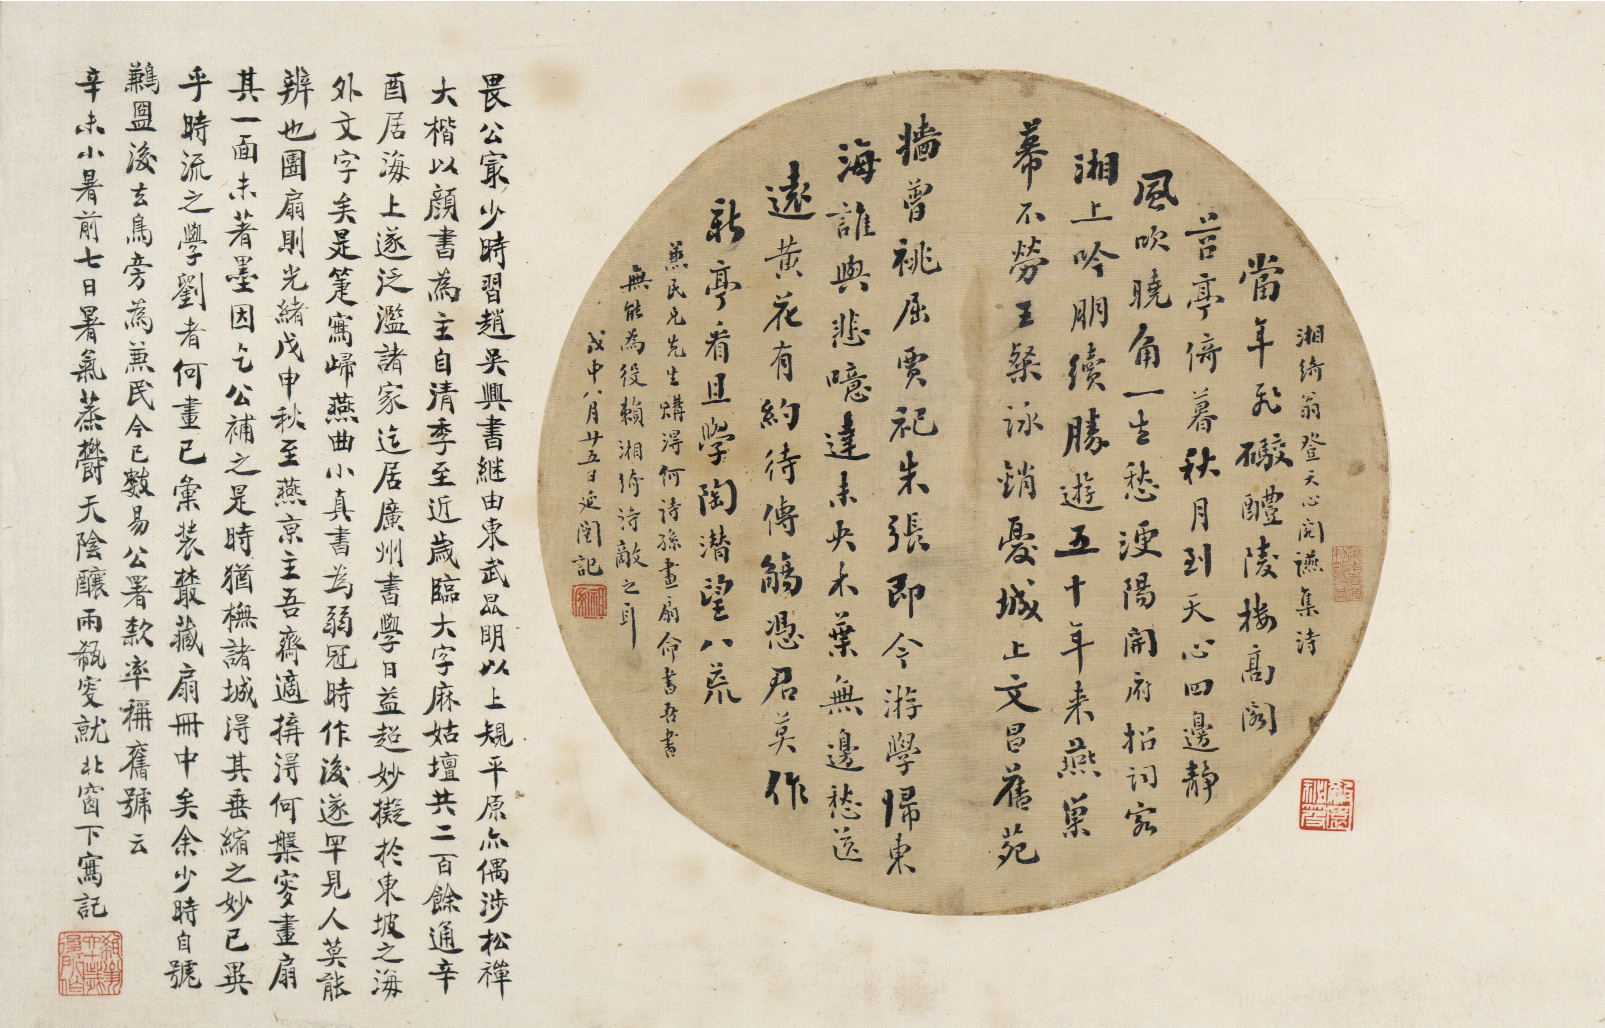 湘綺翁登天心閣讌集詩
當年飛礮醴陵樓高閣
苕亭倚暮秋月到天心四邊靜
風吹曉角一生愁溲陽開府招詞客
湘上吟朋續勝遊五十年来燕巢
幕不勞王粲詠銷憂城上文昌舊苑
牆曾祧屈賈祀朱張即今游學歸東
海誰與悲噫達未央木葉無邊愁送
遠黄花有約待傳觴憑君莫作
新亭看且學陶潜望八荒
蕙民兄先生購得何詩孫畫扇命書吾書
無能為役賴湘綺詩敵之耳
戊申八月廿五日延闓記
畏公冣少時習趙吳興書継由東武昆明以上規平原亦偶涉松禪
大楷以顔書為主自清季至近歲臨大字麻姑壇共二百餘通辛
酉居海上遂泛濫諸家迄居廣州書學日益超妙擬於東坡之海
外文字矣是箑寫歸燕曲小真書為弱冠時作後遂罕見人莫能
辨也團扇則光緒戊申秋至燕京主吾齋適揹得何槃叜畫扇
其一面未著墨因乞公補之是時猶橅諸城得其垂縮之妙已異
乎時流之學劉者何畫已彙裝叢藏扇冊中矣余少時自號
鶼盟後去鳥旁為蒹民今已數易公署欵率稱舊號云
辛未小暑前七日暑氣蒸欝天陰釀雨瓻叜就北窗下寫記